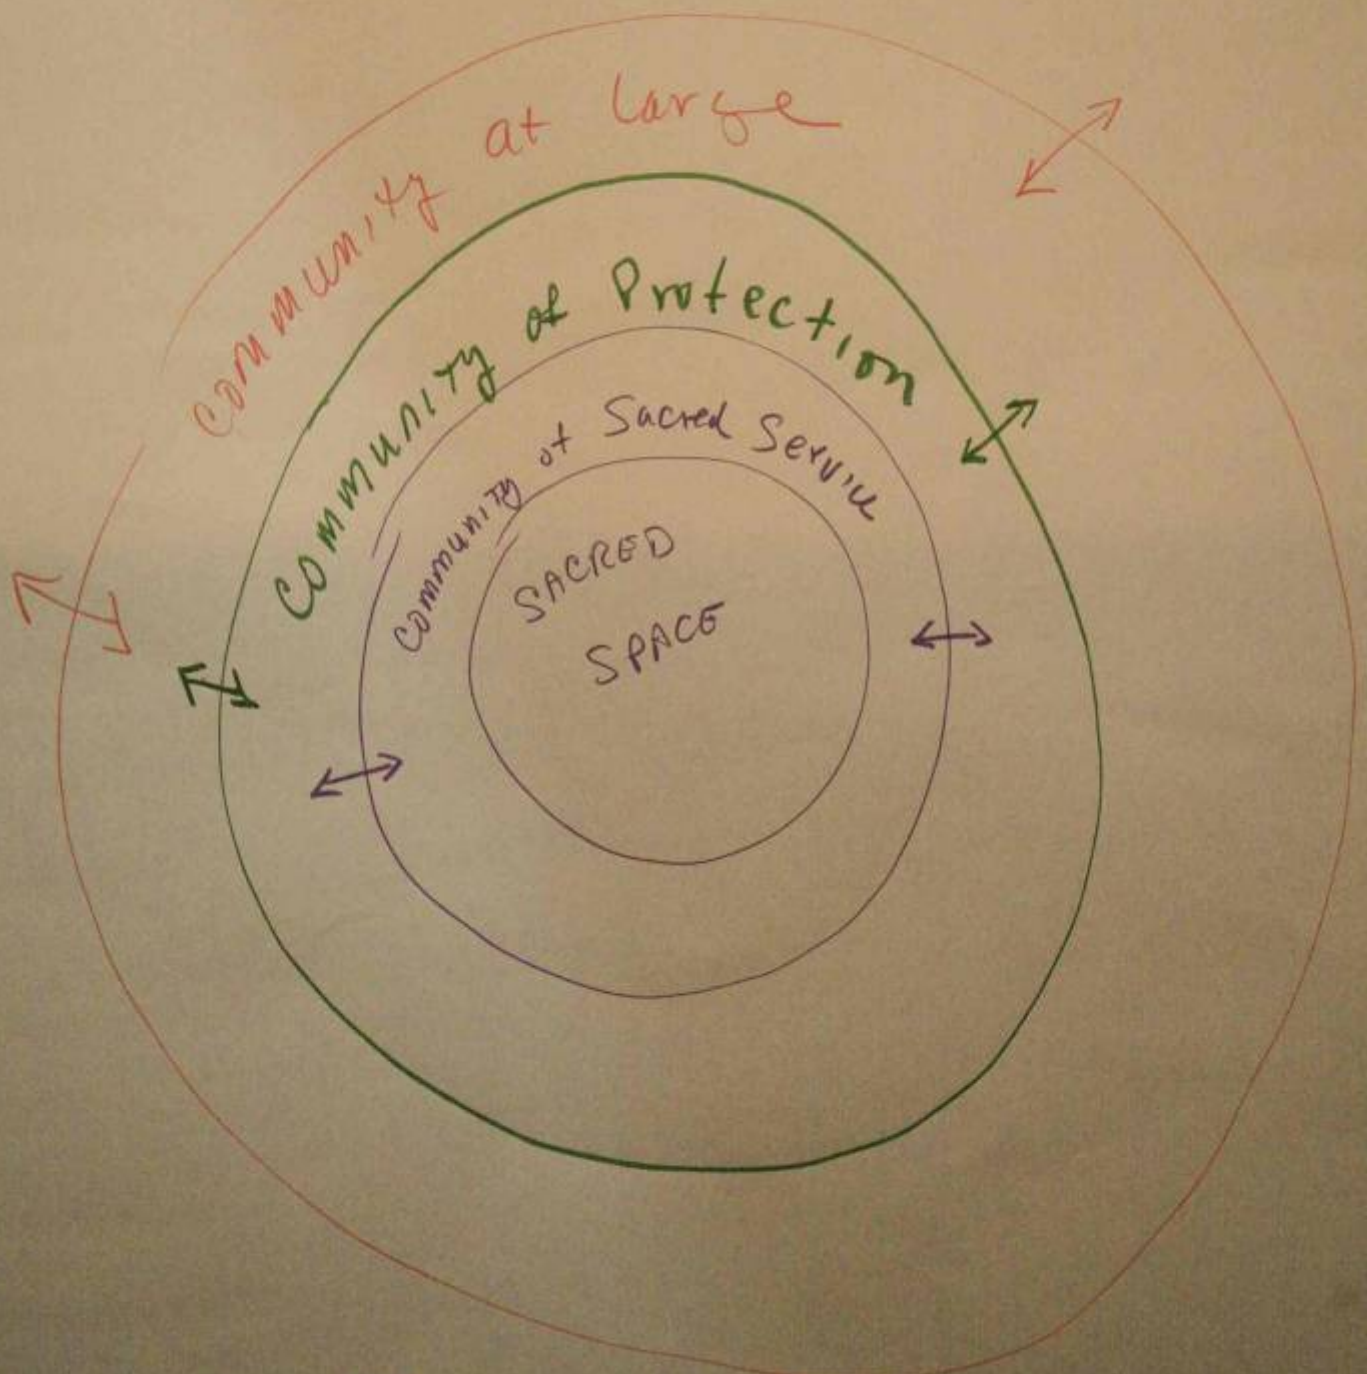 community at large
Community of Protection
Community of Sacred Service
SACRED
SPACE